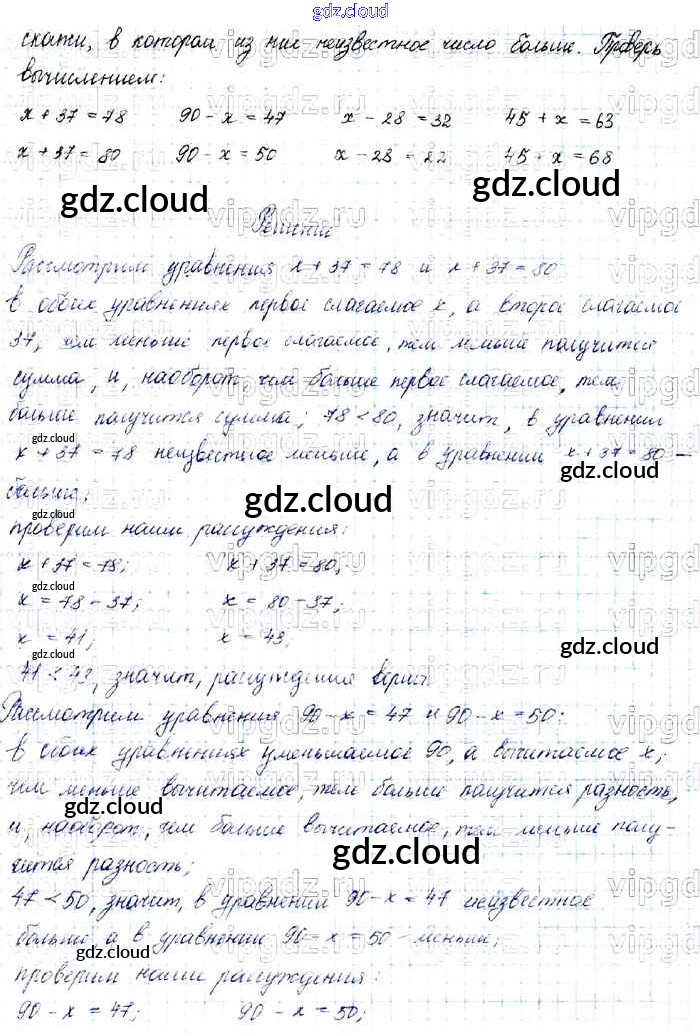 gdz.cloud
скажи, в котором из них неизвестное число больше. Проверь
вычислением:
x + 37 = 78 90 - x = 47 x - 28 = 32 45 + x = 63
x + 37 = 80 90 - x = 50 x - 28 = 22 45 + x = 68
gdz.cloud gdz.cloud
Решение
Рассмотрим уравнения x + 37 = 78 и x + 37 = 80
в обоих уравнениях первое слагаемое x, а второе слагаемое
37, чем меньше первое слагаемое, тем меньше получится
сумма, и, наоборот, чем больше первое слагаемое, тем
больше получится сумма; 78 < 80, значит, в уравнении
gdz.cloud
x + 37 = 78 неизвестное меньше, а в уравнении x + 37 = 80 -
gdz.cloud
больше;
gdz.cloud
проверим наши рассуждения:
gdz.cloud
x + 37 = 78; x + 37 = 80;
gdz.cloud
x = 78 - 37; x = 80 - 37;
gdz.cloud
x = 41; x = 43;
gdz.cloud
41 < 43, значит, рассуждения верны.
Рассмотрим уравнения 90 - x = 47 и 90 - x = 50:
в обоих уравнениях уменьшаемое 90, а вычитаемое x;
чем меньше вычитаемое, тем больше получится разность,
gdz.cloud
и, наоборот, чем больше вычитаемое, тем меньше полу-
чится разность;
gdz.cloud
47 < 50, значит, в уравнении 90 - x = 47 неизвестное
больше, а в уравнении 90 - x = 50 - меньше;
gdz.cloud gdz.cloud
проверим наши рассуждения:
90 - x = 47; 90 - x = 50;